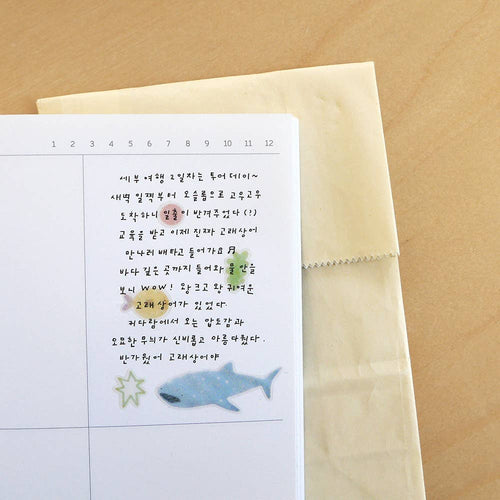 1 2 3 4 5 6 7 8 9 10 11 12
세부 여행 2일차는 투어데이~
새벽 일찍부터 오슬롭으로 고우고우
도착하니 일출이 반겨주었다(?)
교육을 받고 이제 진짜 고래상어
만나러 배타고 들어가요♬
바다 깊은 곳까지 들어와 물 안을
보니 WOW! 왕크고 왕귀여운
고래상어가 있었다.
커다람에서 오는 압도감과
오묘한 무늬가 신비롭고 아름다웠다.
반가웠어 고래상어야